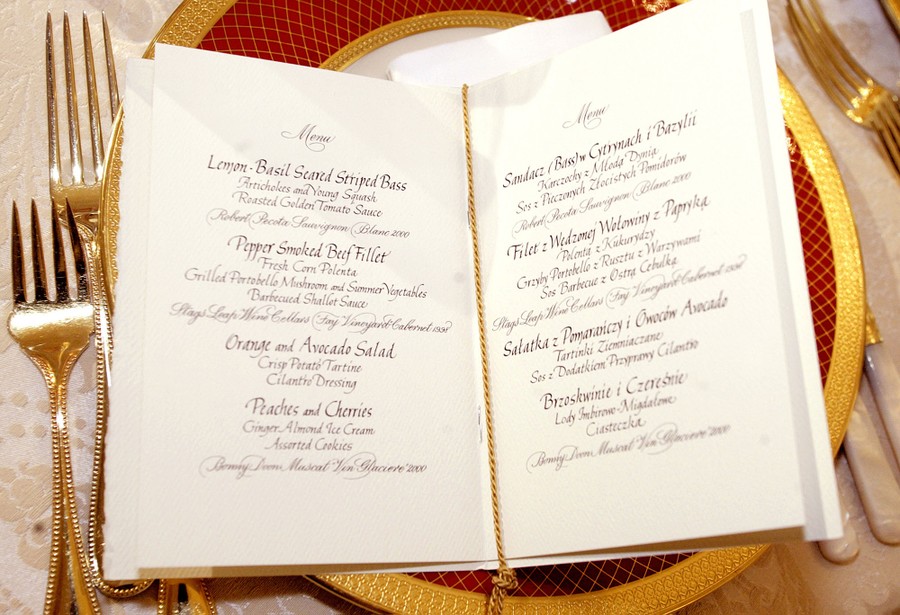 Menu
Lemon-Basil Seared Striped Bass
Artichokes and Young Squash
Roasted Golden Tomato Sauce
Robert Pecota Sauvignon Blanc 2000
Pepper Smoked Beef Fillet
Fresh Corn Polenta
Grilled Portobello Mushroom and Summer Vegetables
Barbecued Shallot Sauce
Stags Leap Wine Cellars Fay Vineyard Cabernet 1998
Orange and Avocado Salad
Crisp Potato Tartine
Cilantro Dressing
Peaches and Cherries
Ginger Almond Ice Cream
Assorted Cookies
Bonny Doon Muscat Vin Glaciere 2000
Menu
Sandacz (Bass) w Cytrynach i Bazylii
Karczochy z Młodą Dynią
Sos z Pieczonych Złocistych Pomidorów
Robert Pecota Sauvignon Blanc 2000
Filet z Wędzonej Wołowiny z Papryką
Polenta z Kukurydzy
Grzyby Portobello z Rusztu z Warzywami
Sos Barbecue z Ostrą Cebulką
Stags Leap Wine Cellars Fay Vineyard Cabernet 1998
Sałatka z Pomarańczy i Owoców Avocado
Tartinki Ziemniaczane
Sos z Dodatkiem Przyprawy Cilantro
Brzoskwinie i Czereśnie
Lody Imbirowo-Migdałowe
Ciasteczka
Bonny Doon Muscat Vin Glaciere 2000